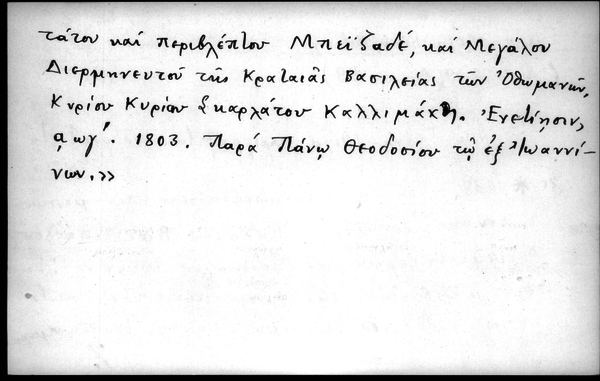 τάτου καὶ περιβλέπτου Μπεϊζαδέ, καὶ Μεγάλου
Διερμηνευτοῦ τῆς Κραταιᾶς Βασιλείας τῶν Ὀθωμανῶν,
Κυρίου Κυρίου Σκαρλάτου Καλλιμάχη. Ἐνετίησιν,
αωγ΄. 1803. Παρὰ Πάνῳ Θεοδοσίου τῷ ἐξ Ἰωαννί-
νων.»